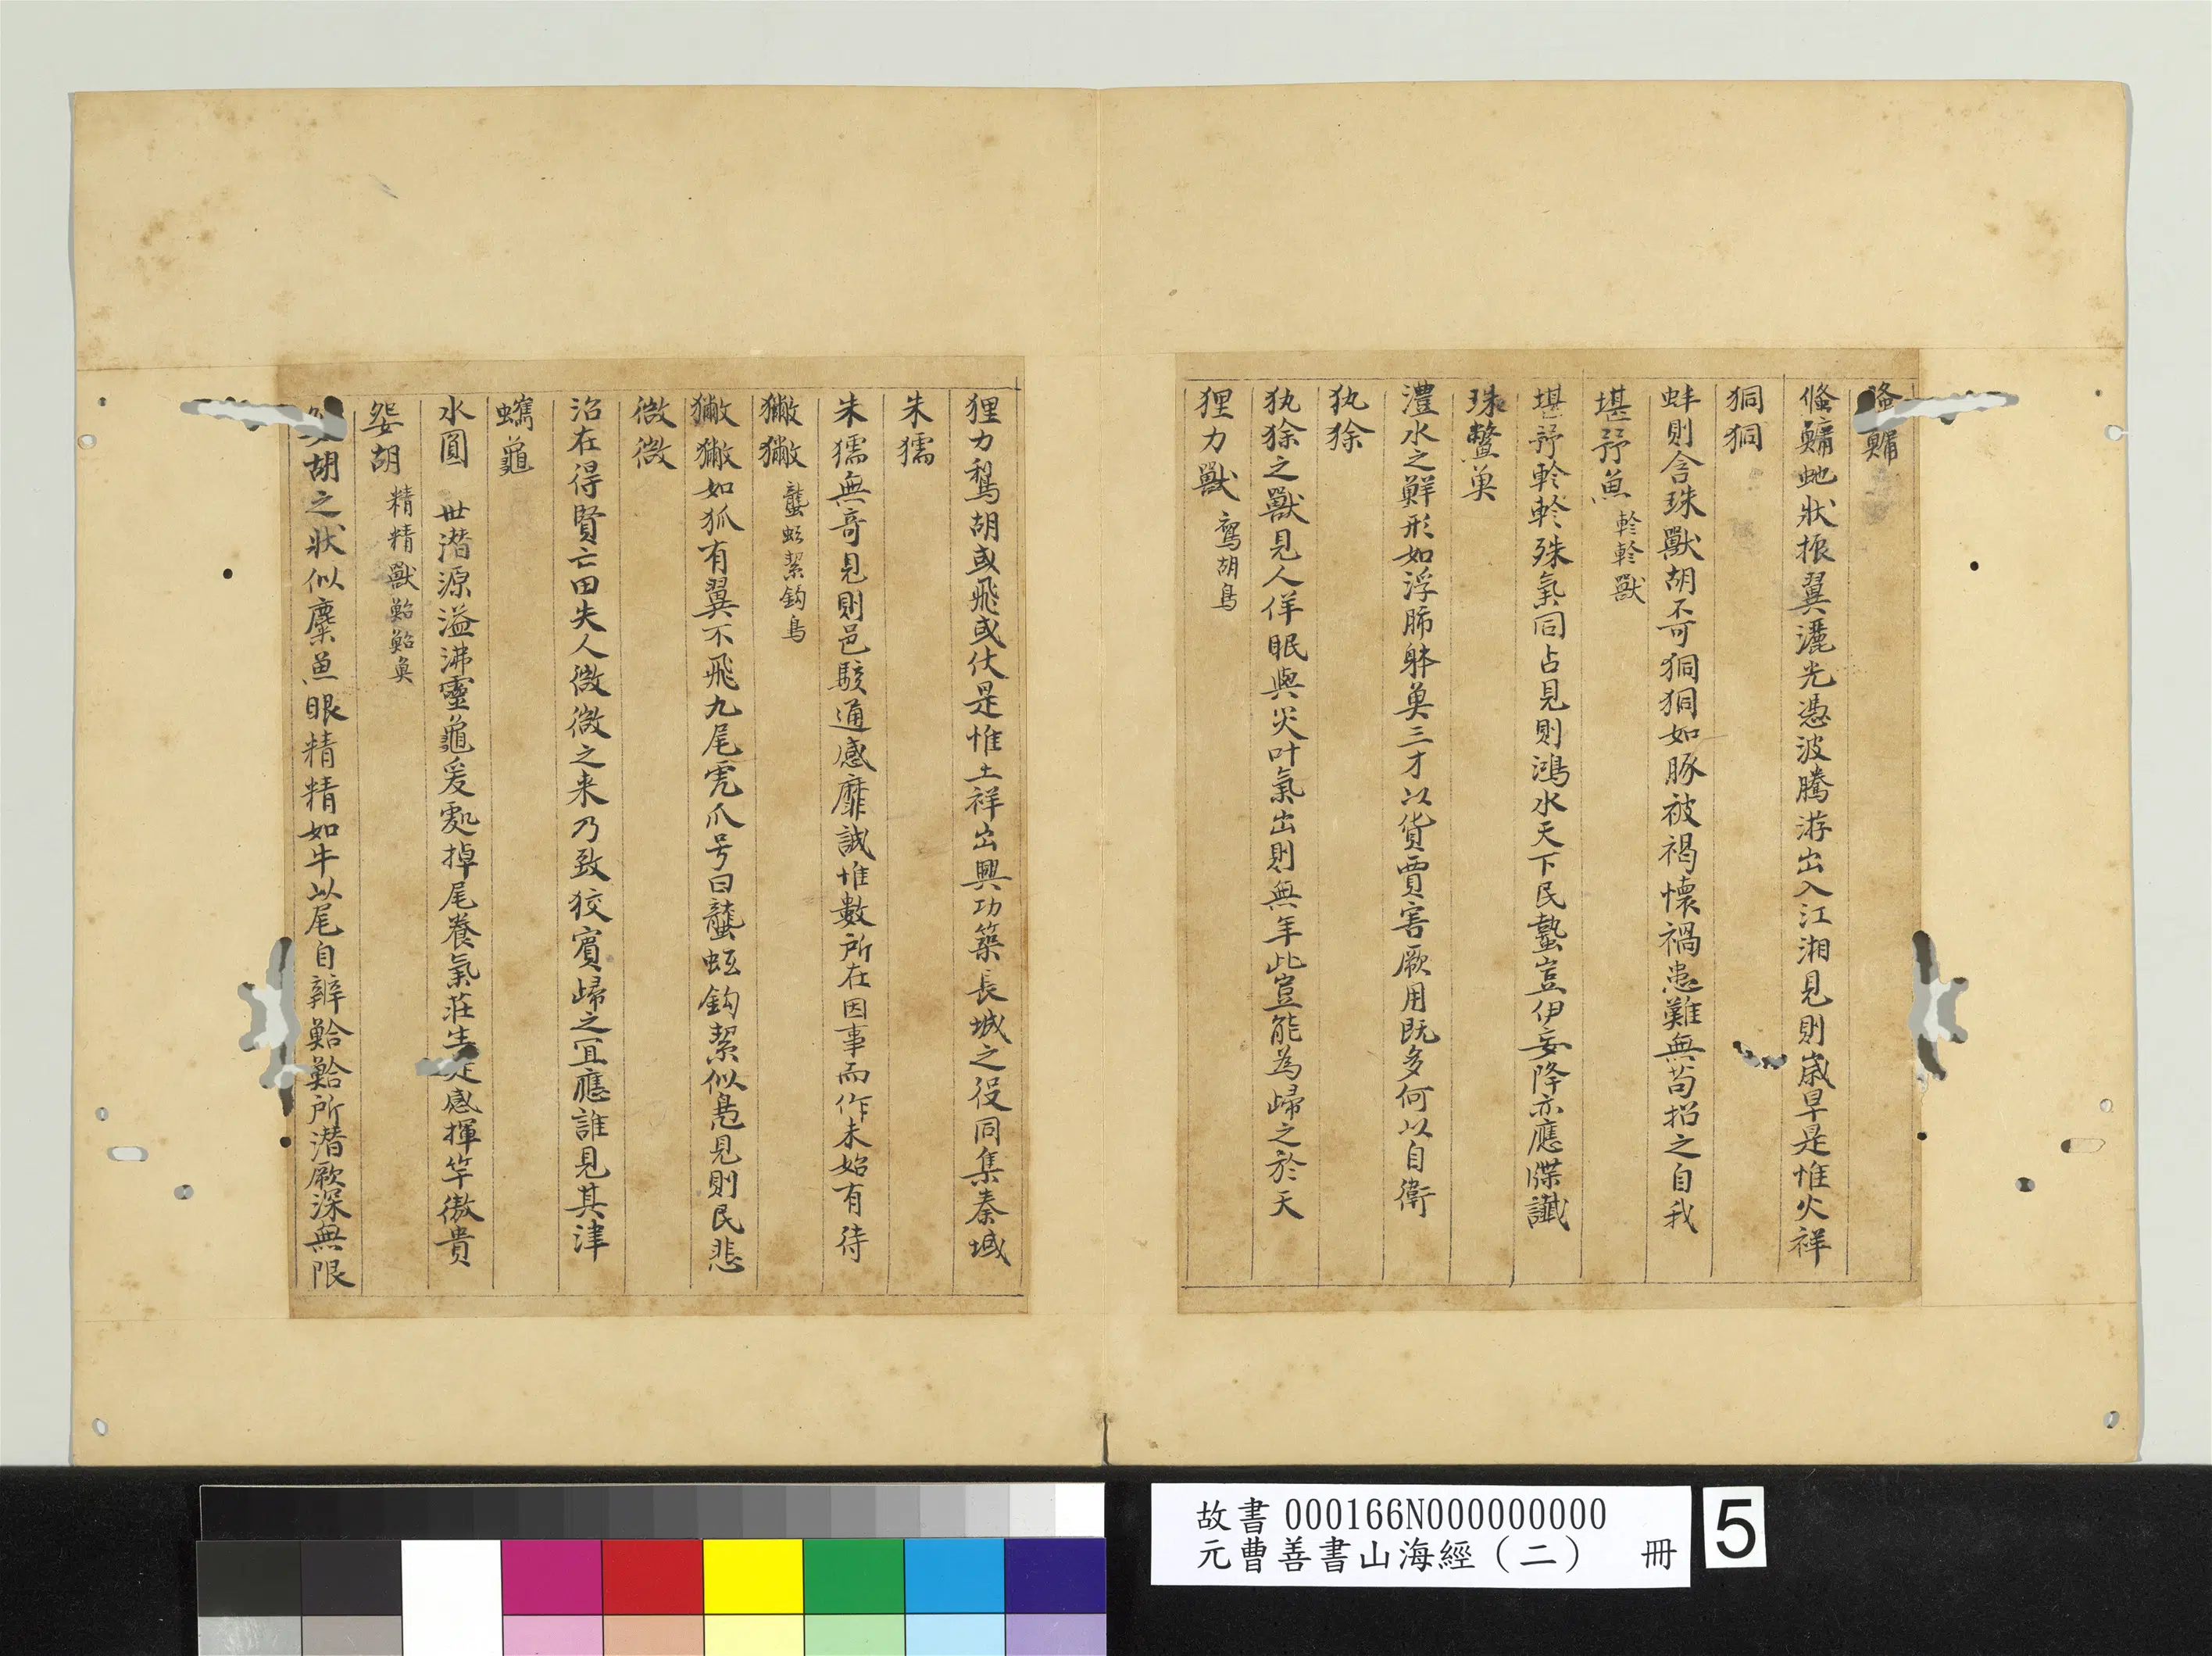 䖺鱅
䖺鱅虵狀振翼灑光憑波騰游出入江湘見則歲旱是惟火祥
狪狪
蚌則含珠獸胡不可狪狪如豚被褐懷禍患難無苟招之自我
堪㐨魚 軨軨獸
堪㐨軨軨殊氣同占見則鴻水天下民墊豈伊妄降亦應牒讖
珠鱉奠
澧水之鮮形如浮肺躰奠三才以貨賈害厥用既多何以自衛
犰狳
犰狳之獸見人佯眠與災叶氣出則無年此豈能為歸之於天
狸力獸 鵹胡鳥
狸力鵹胡或飛或伏是惟土祥出興功築長城之役同集秦域
朱獳
朱獳無竒見則邑駭通感靡誠惟數所在因事而作未始有待
獙獙 蠪蚳絜鈎鳥
獙獙如狐有翼不飛九尾虎爪号曰蠪蚳鈎絜似鳬見則民悲
㣲㣲
治在得賢亡由失人㣲㣲之来乃致狡賓歸之冝應誰見其津
蠵龜
水圓 丗潛源溢沸靈龜爰處掉尾養氣莊生是感揮竿傲貴
妴胡 精精獸鮯鮯奠
妴胡之狀似麋魚眼精精如牛以尾自辨鮯鮯所潛厥深無限
故書 000166N000000000
元曹善書山海經（二） 冊
5